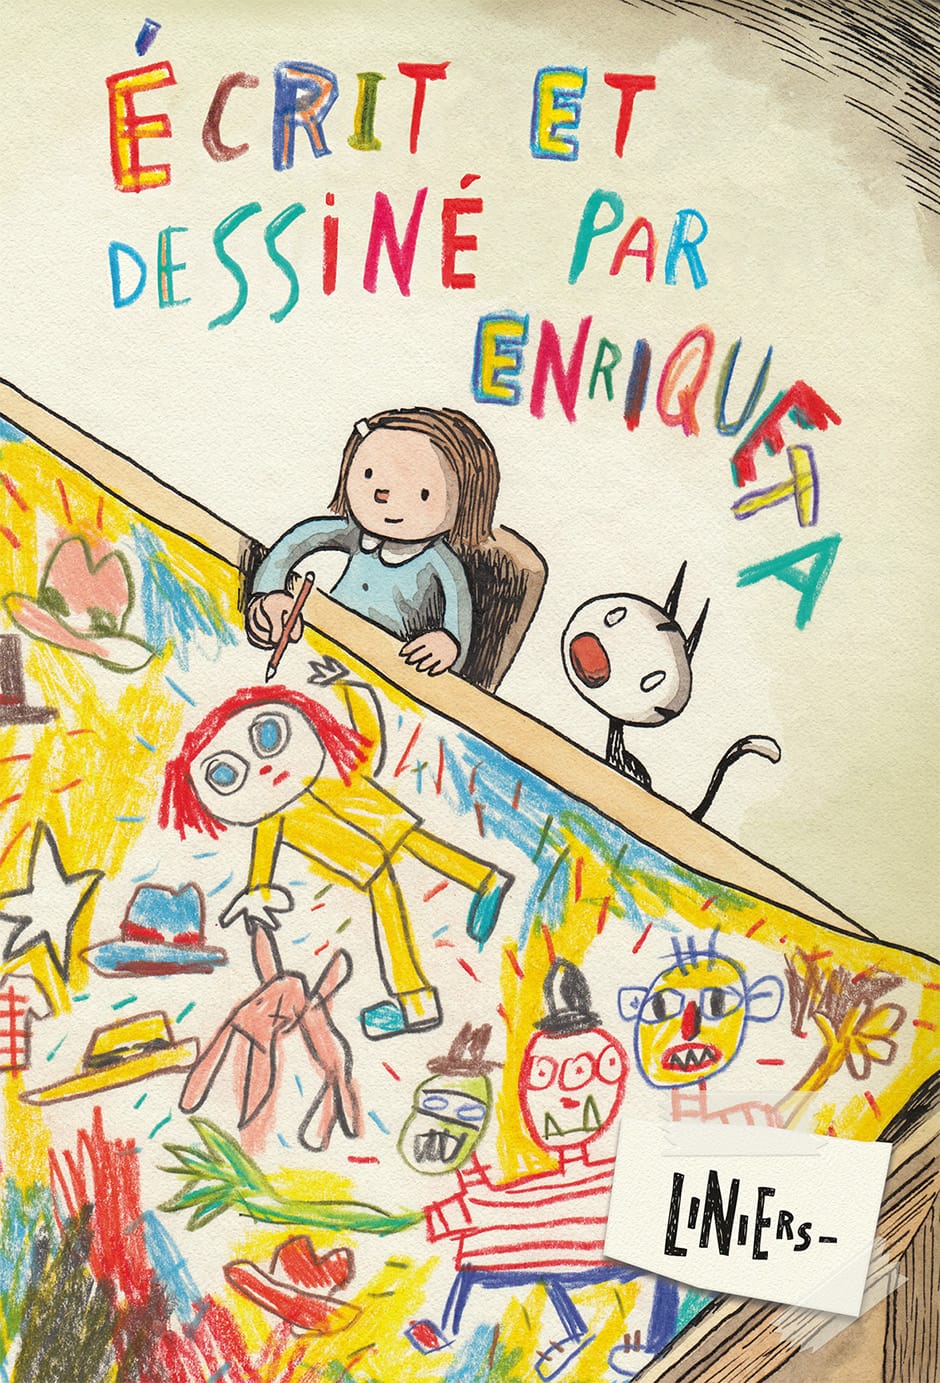 ÉCRIT ET
DESSINÉ PAR
ENRIQUETA
LINIERS-